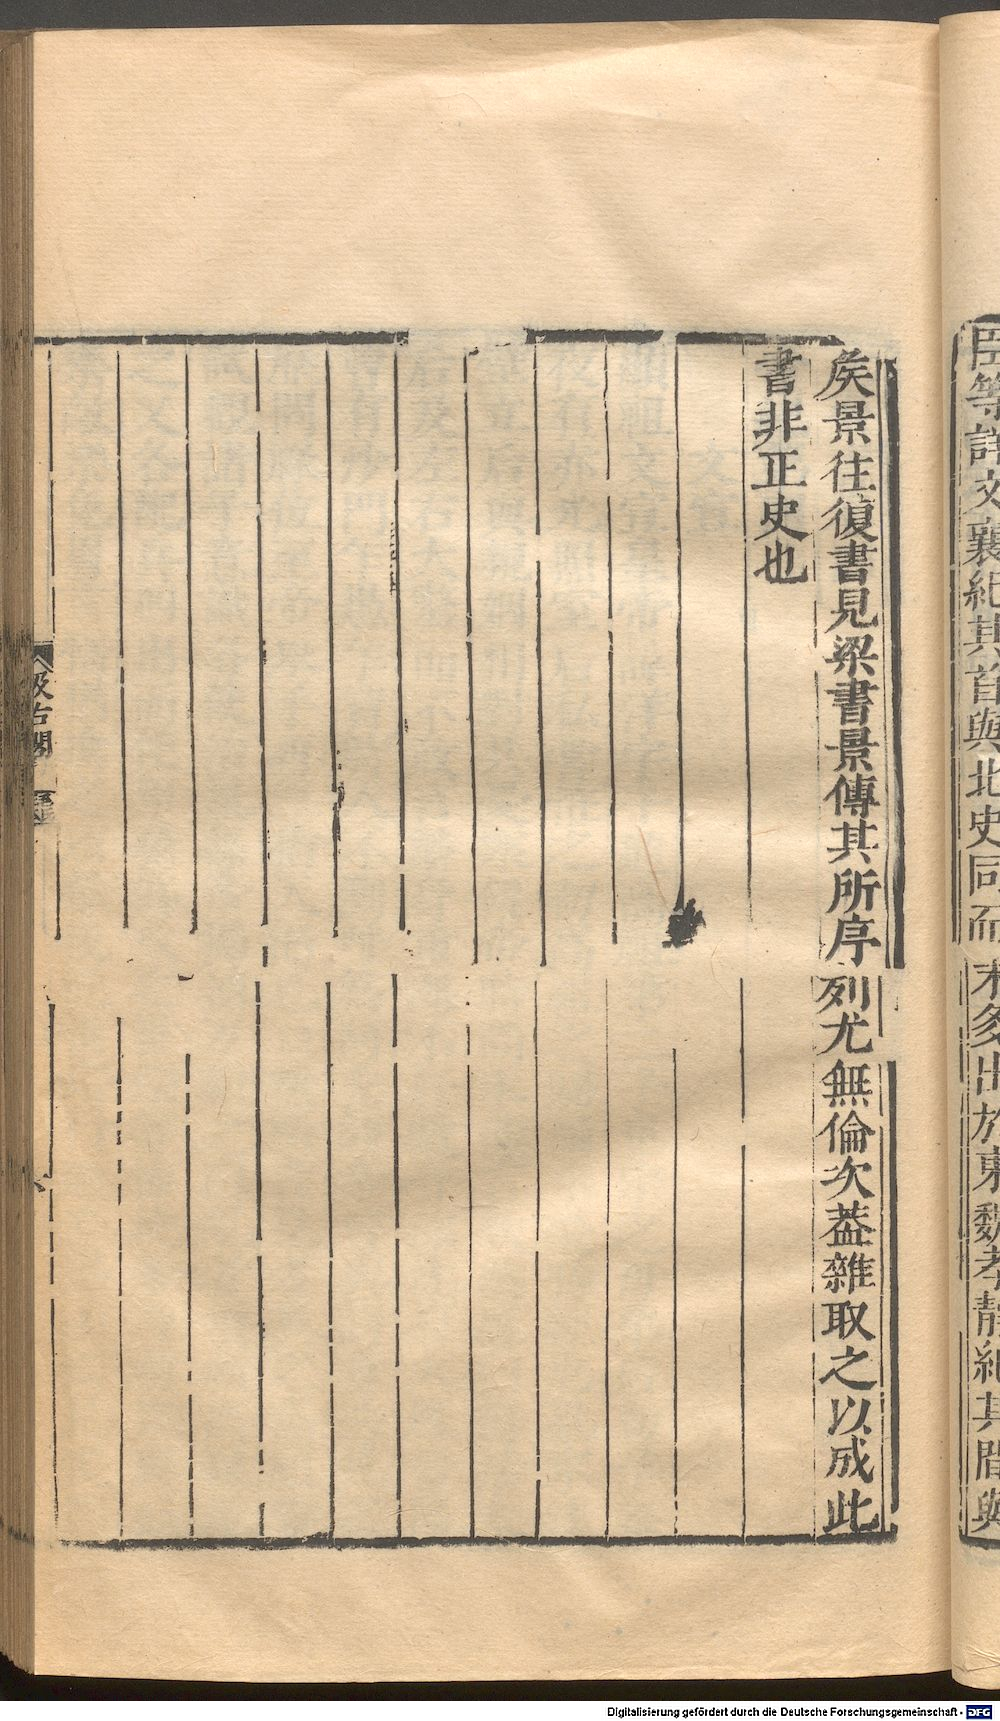 臣等詳文襄紀其首與北史同而末多出於東魏孝靜紀其間與
矦景往復書見梁書景傳其所序列尤無倫次葢雜取之以成此
書非正史也
汲古閣
Digitalisierung gefördert durch die Deutsche Forschungsgemeinschaft - DFG